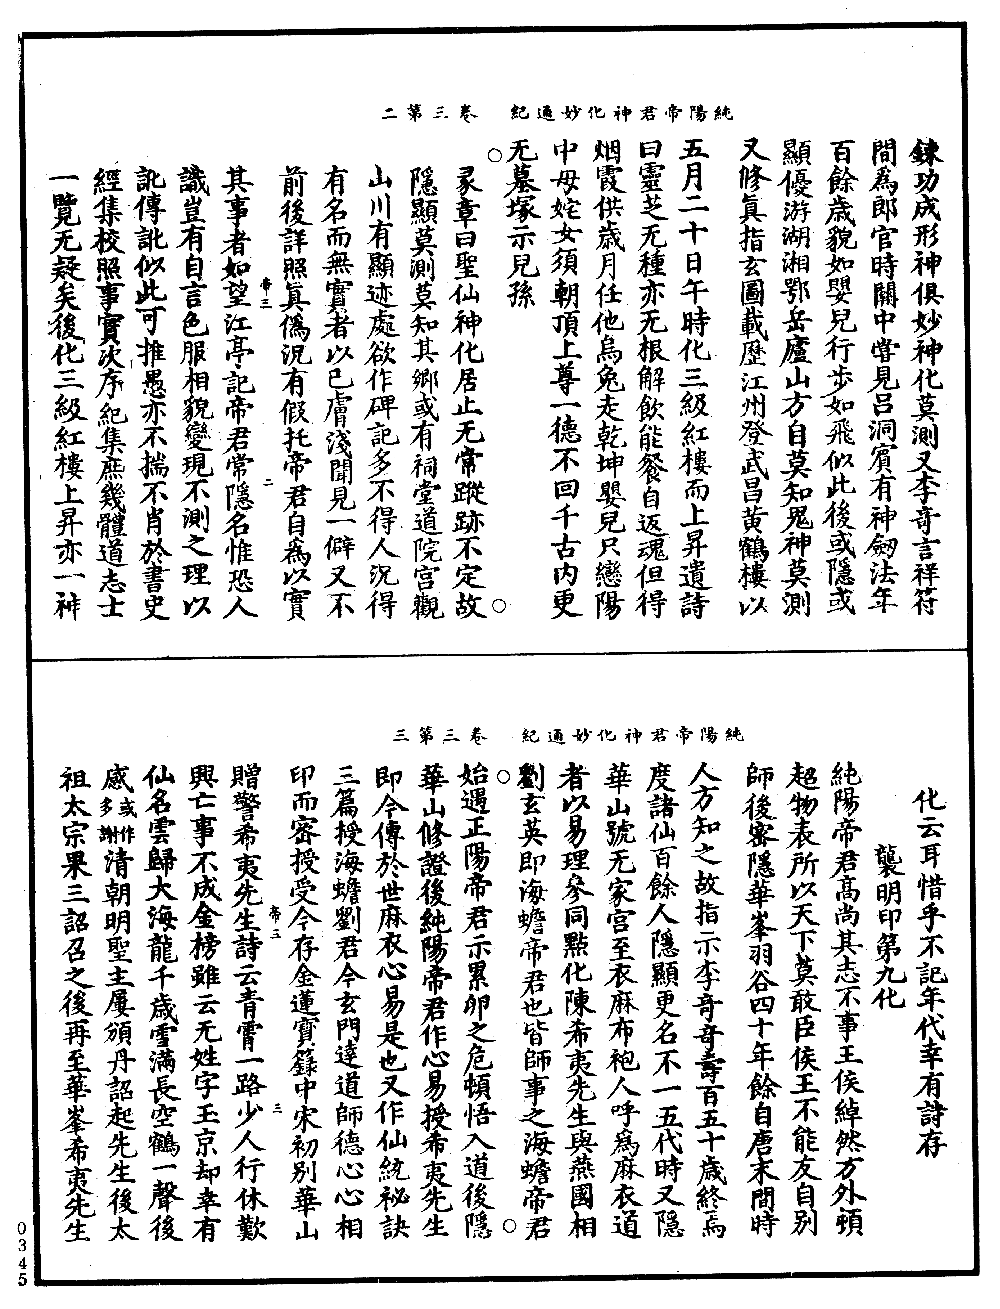 純陽帝君神化妙通紀 卷三第二
鍊功成形神俱妙神化莫測又李奇言祥符
間為郎官時關中嘗見呂洞賓有神劒法年
百餘歲貌如嬰兒行步如飛似此後或隱或
顯優游湖湘鄂岳廬山方自莫知鬼神莫測
又修真指玄圖載歷江州登武昌黃鶴樓以
五月二十日午時化三級紅樓而上昇遺詩
曰靈芝无種亦无根解飲能餐自返魂但得
烟霞供歲月任他烏兔走乾坤嬰兒只戀陽
中母姹女須朝頂上尊一德不回千古內更
无墓塚示兒孫
○彖章曰聖仙神化居止无常蹤跡不定故○
隱顯莫測莫知其鄉或有祠堂道院宮觀
山川有顯迹處欲作碑記多不得人況得
有名而無實者以已膚淺聞見一僻又不
前後詳照真僞況有假托帝君自為以實
帝三 二
其事者如望江亭記帝君常隱名惟恐人
識豈有自言色服相貌變現不測之理以
訛傳訛似此可推愚亦不揣不肖於書史
經集校照事實次序紀集庶幾體道志士
一覽无疑矣後化三級紅樓上昇亦一神
純陽帝君神化妙通紀 卷三第三
化云耳惜乎不記年代幸有詩存
襲明印第九化
純陽帝君高尚其志不事王侯綽然方外頓
超物表所以天下莫敢臣侯王不能友自别
師後密隱華峯羽谷四十年餘自唐末間時
人方知之故指示李奇奇壽百五十歲終焉
度諸仙百餘人隱顯更名不一五代時又隱
華山號无家宮至衣麻布袍人呼為麻衣道
者以易理參同點化陳希夷先生與燕國相
○劉玄英即海蟾帝君也皆師事之海蟾帝君○
始遇正陽帝君示累卵之危頓悟入道後隱
華山修證後純陽帝君作心易授希夷先生
即今傳於世麻衣心易是也又作仙統祕訣
三篇授海蟾劉君今玄門達道師德心心相
印而審授受今存金蓮寶籙中宋初别華山
帝三 三
贈警希夷先生詩云青霄一路少人行休歎
興亡事不成金榜雖云无姓字玉京却幸有
仙名雲歸大海龍千歲雪滿長空鶴一聲後
感或作多謝清朝明聖主屢頒丹詔起先生後太
祖太宗果三詔召之後再至華峯希夷先生
0345